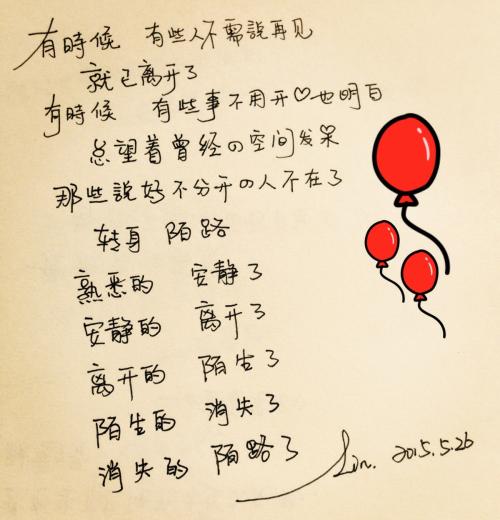 有時候 有些人不需說再见
就已离开了
有時候 有些事不用开♡也明白
总望着曾经の空间发呆
那些說好不分开の人不在了
转身 陌路
熟悉的 安静了
安静的 离开了
离开的 陌生了
陌生的 消失了
消失的 陌路了
Lin. 2015.5.26